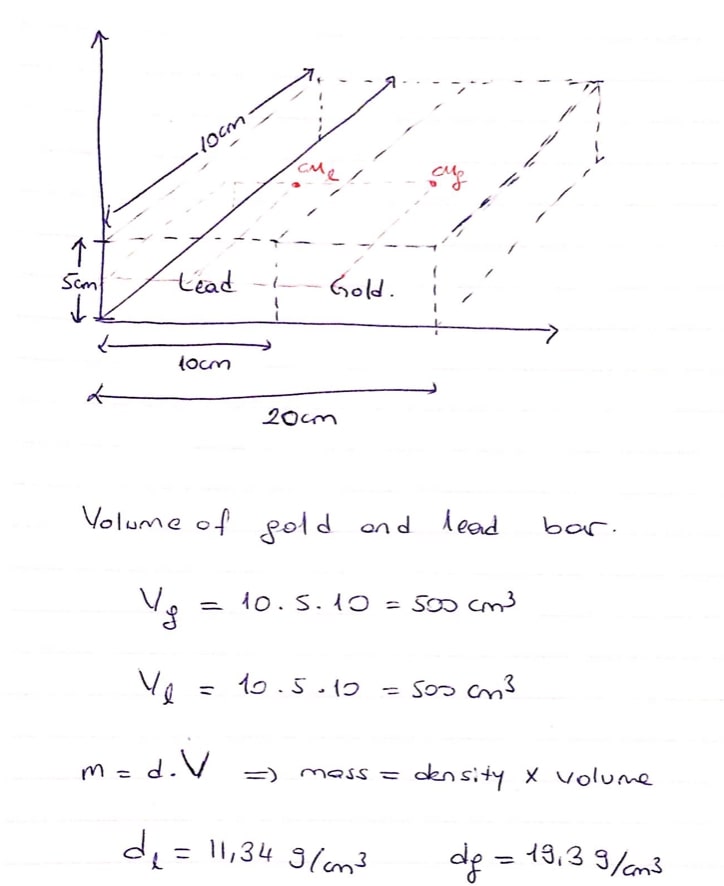 10cm
CMl
CMg
5cm
Lead
Gold.
10cm
20cm
Volume of gold and lead bar.
Vg = 10 . 5 . 10 = 500 cm³
Vl = 10 . 5 . 10 = 500 cm³
m = d . V => mass = density x volume
dl = 11,34 g/cm³ dg = 19,3 g/cm³